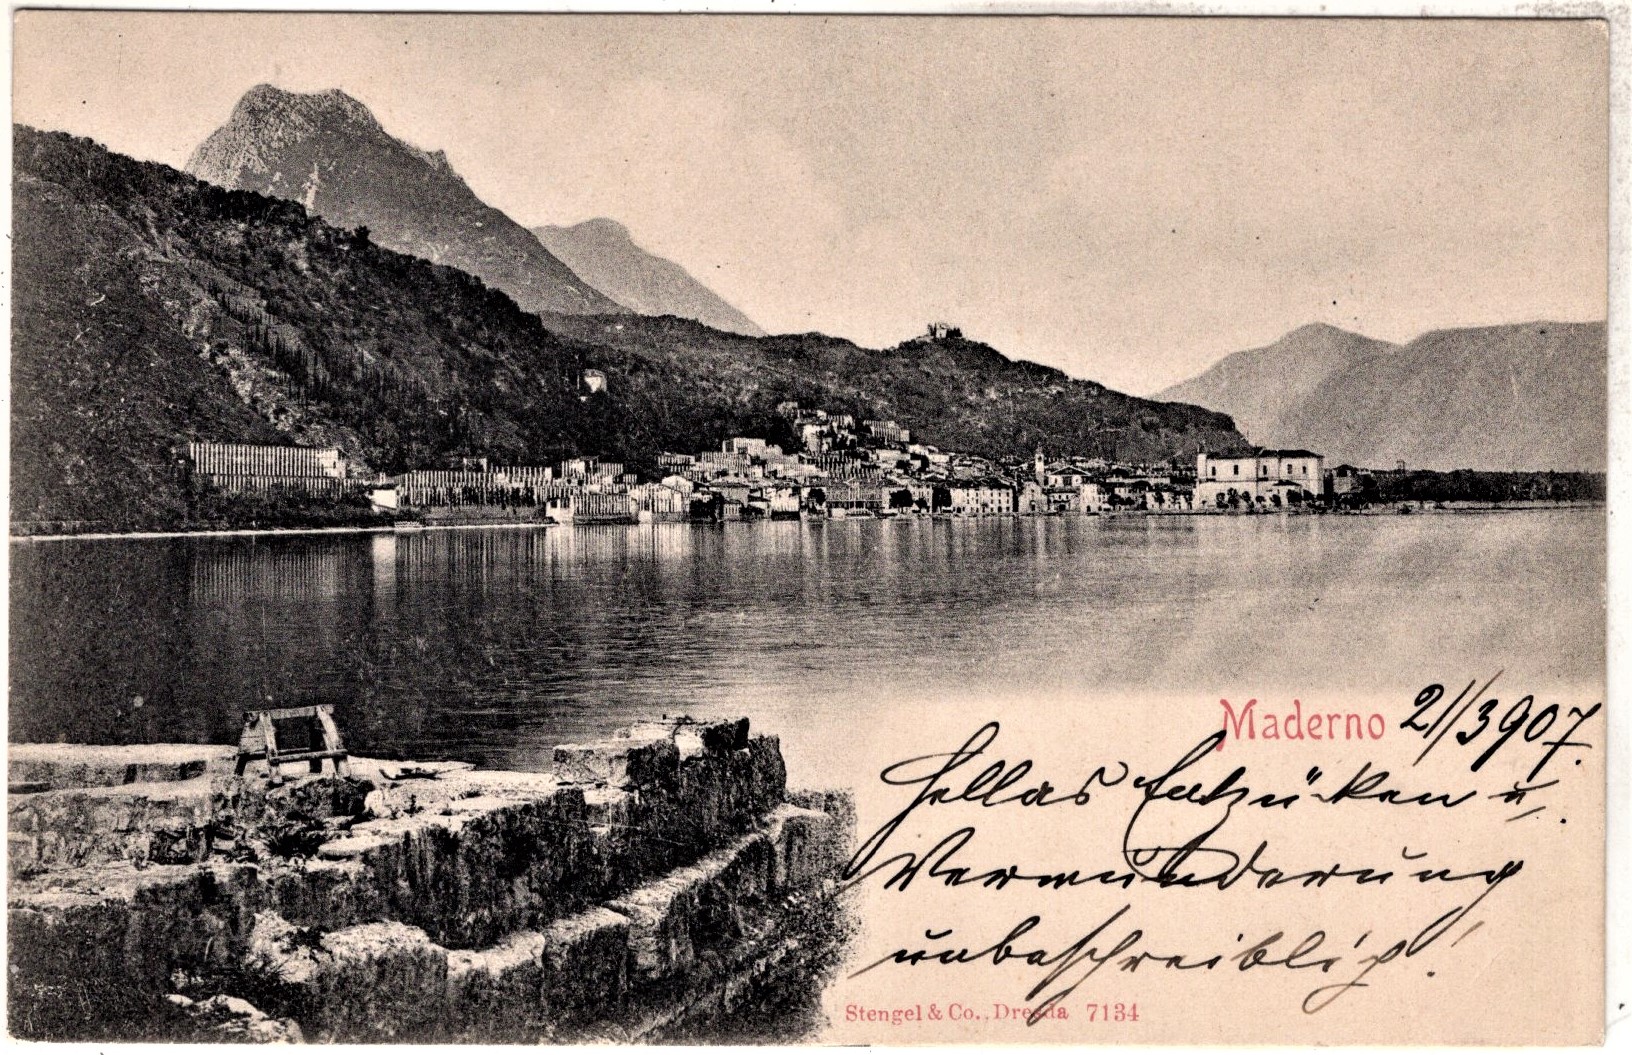 Maderno 21/3 907.
Hellas Entzücken u.
Verwunderung
unbeschreiblich!
Stengel & Co., Dresda 7134